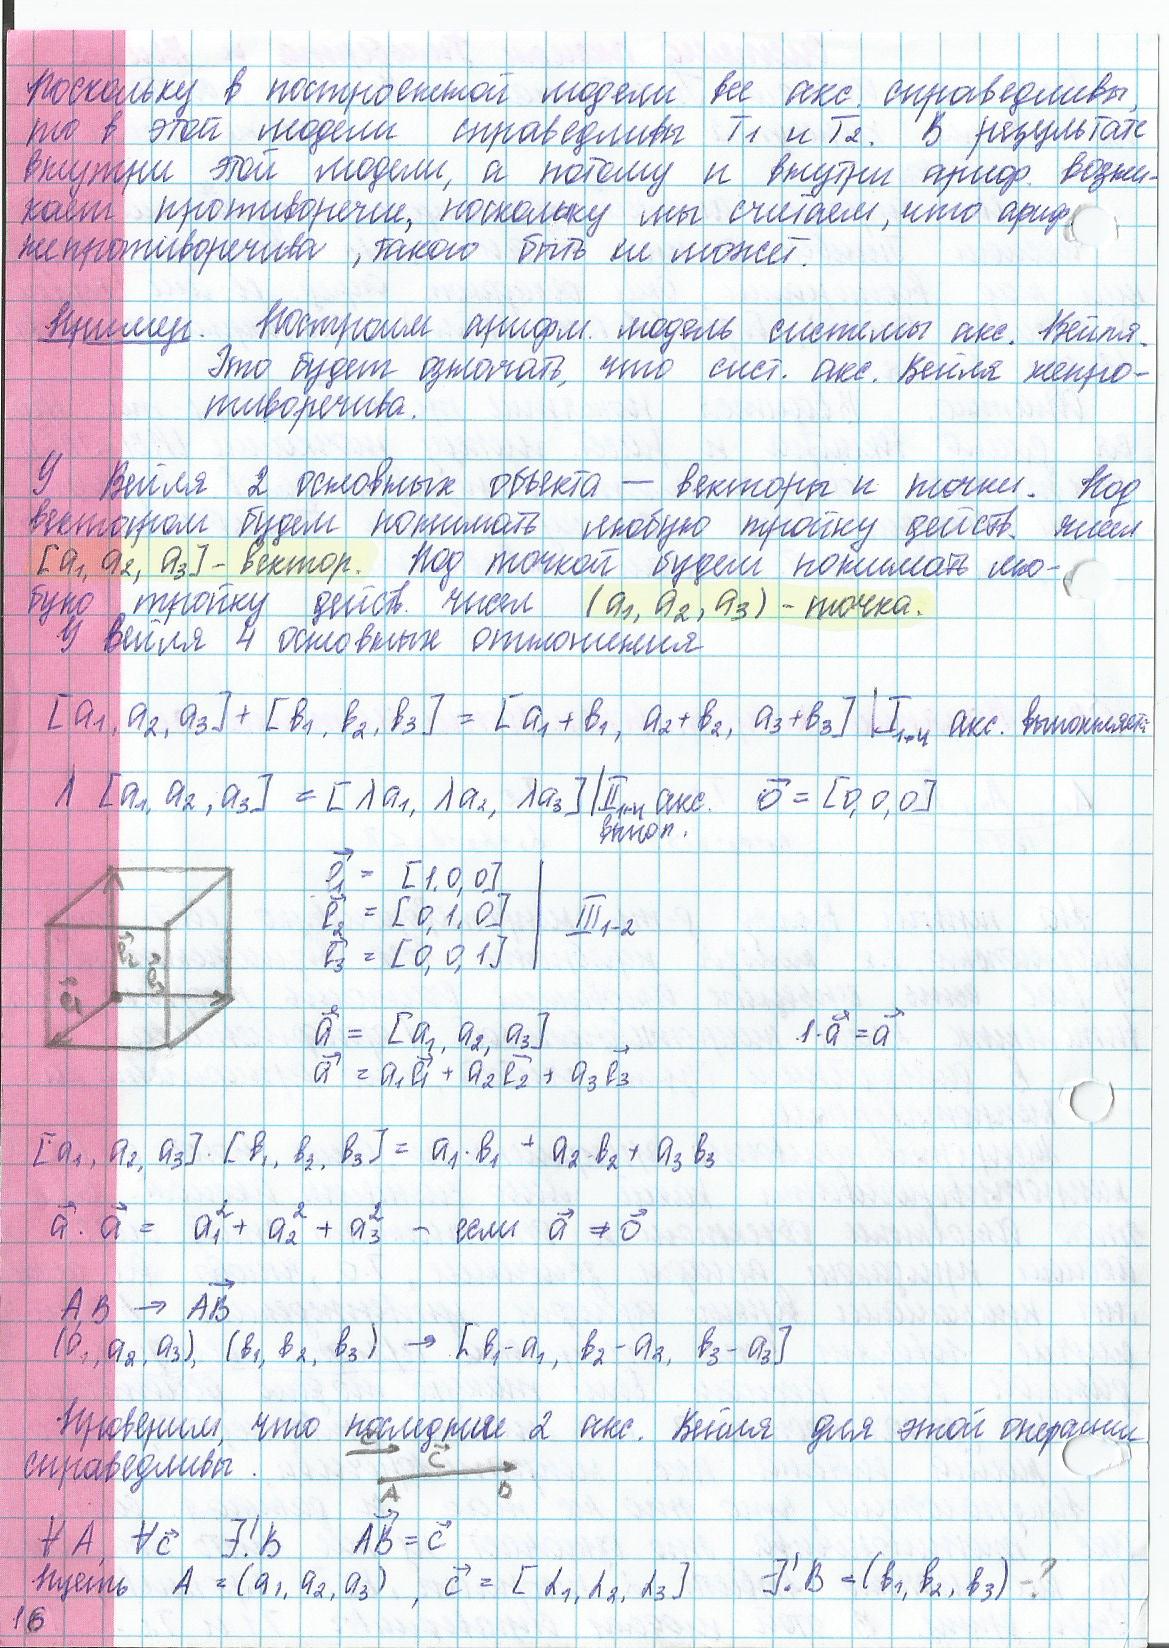 Поскольку в построенной модели все акс. справедливы,
то в этой модели справедливы T1 и T2. В результате
внутри этой модели, а потому и внутри ариф. возни-
кает противоречие, поскольку мы считаем, что ариф.
непротиворечива, такого быть не может.
Пример. Построим арифм. модель системы акс. Вейля.
Это будет означать, что сист. акс. Вейля непро-
тиворечива.
У Вейля 2 основных объекта — векторы и точки. Под
вектором будем понимать любую тройку действ. чисел
[a1, a2, a3] - вектор. Под точкой будем понимать лю-
бую тройку действ. чисел (a1, a2, a3) - точка.
У Вейля 4 основных отношения
[a1, a2, a3] + [b1, b2, b3] = [a1 + b1, a2 + b2, a3 + b3] | I1-4 акс. выполняет.
λ [a1, a2, a3] = [λa1, λa2, λa3] | II1-4 акс. o⃗ = [0,0,0]
выпол.
e⃗1 = [1,0,0]
e⃗2 = [0,1,0] III1-2
e⃗3 = [0,0,1]
e⃗1 e⃗2 e⃗3
a⃗ = [a1, a2, a3] 1·a⃗ = a⃗
a⃗ = a1e⃗1 + a2e⃗2 + a3e⃗3
[a1, a2, a3] · [b1, b2, b3] = a1·b1 + a2·b2 + a3b3
a⃗ · a⃗ = a1² + a2² + a3² - если a⃗ ≠ o⃗
A B → AB⃗
(a1, a2, a3), (b1, b2, b3) → [b1-a1, b2-a2, b3-a3]
Проверим, что последние 2 акс. Вейля для этой операции
справедливы.
c⃗ c⃗
A B
∀A, ∀c⃗ ∃!B AB⃗ = c⃗
Пусть A = (a1, a2, a3), c⃗ = [α1, α2, α3] ∃!B = (b1, b2, b3) -?
16